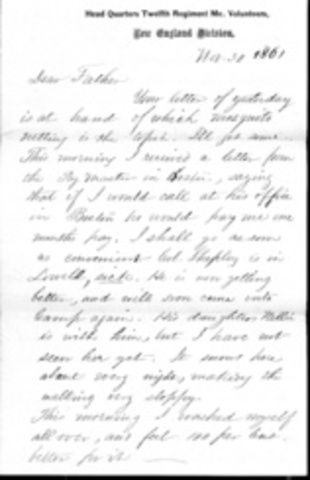 Head Quarters Twelfth Regiment Me. Volunteers,
New England Division,
Nov. 30 1861
Dear Father
Your letter of yesterday
is at hand of which mosquito
netting is the topic. I'll get some.
This morning I received a letter from
the Pay Master in Boston, saying
that if I would call at his office
in Boston he would pay me one
months pay. I shall go as soon
as convenient Col. Shepley is in
Lowell, sick. He is now getting
better, and will soon come into
Camp again. His daughter Nellie
is with him, but I have not
seen her yet. It snows here
about every night, making the
walking very sloppy.
This morning I washed myself
all over, and feel 100 per cent.
better for it